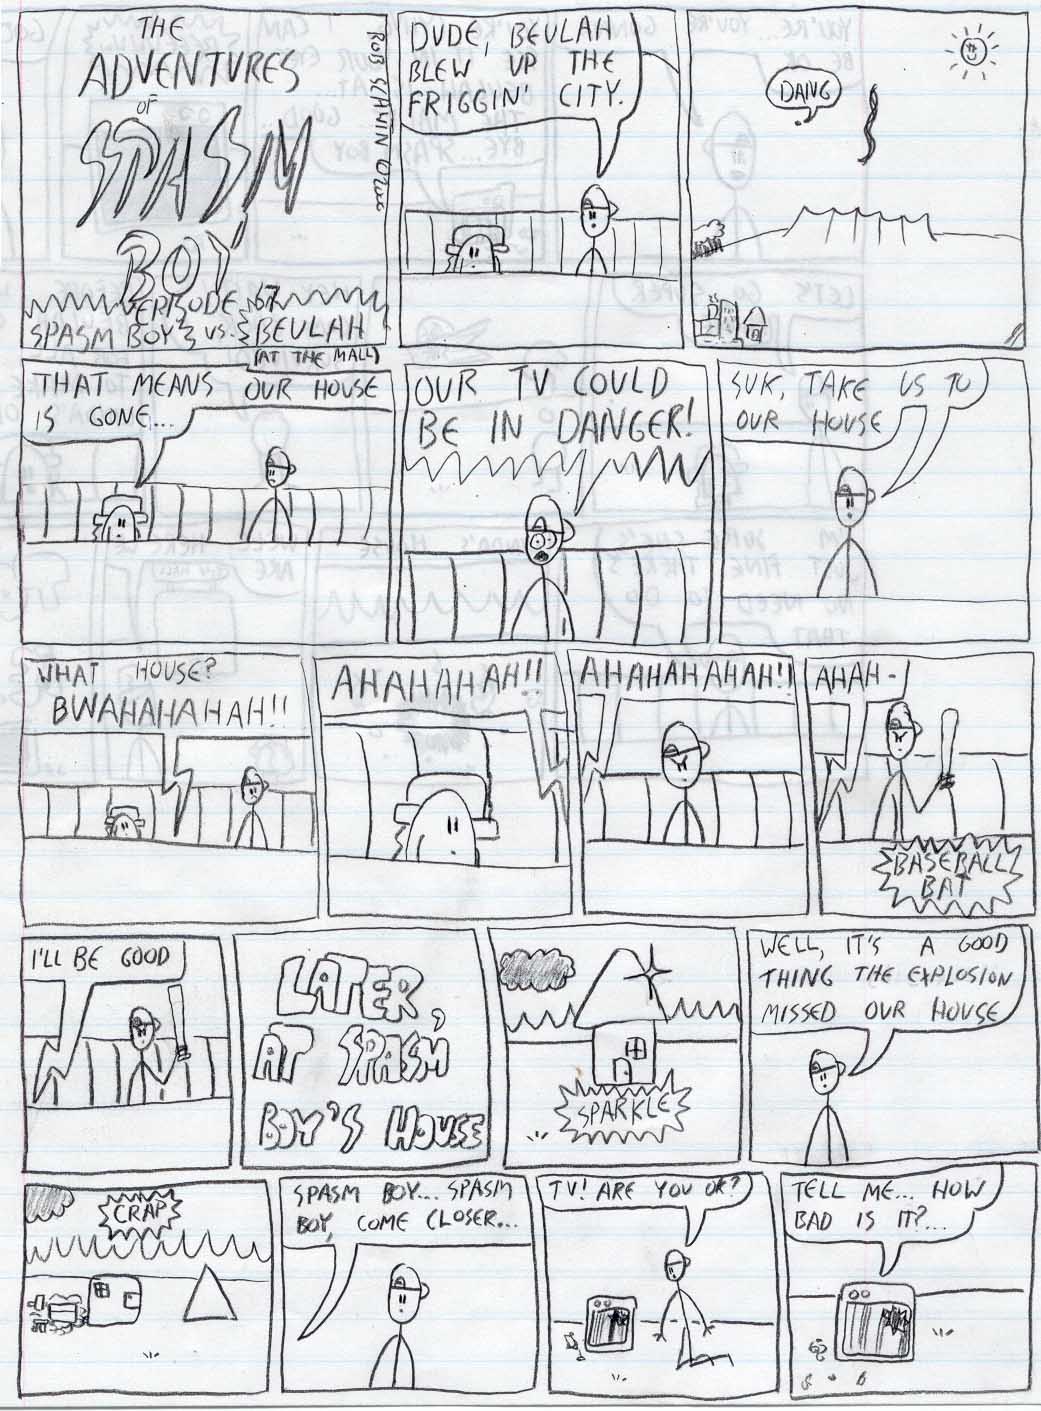 THE
ADVENTURES
OF
SPASM
BOY
EPISODE 67
SPASM BOY VS. BEULAH
(AT THE MALL)
DUDE, BEULAH
BLEW UP THE
FRIGGIN' CITY.
DANG
THAT MEANS OUR HOUSE
IS GONE...
OUR TV COULD
BE IN DANGER!
SUK, TAKE US TO
OUR HOUSE
WHAT HOUSE?
BWAHAHAHAH!!
AHAHAHAH!!
AHAHAHAHAH!!
AHAH-
BASEBALL
BAT
I'LL BE GOOD
LATER,
AT SPASM
BOY'S HOUSE
SPARKLE
WELL, IT'S A GOOD
THING THE EXPLOSION
MISSED OUR HOUSE
CRAP
SPASM BOY... SPASM
BOY, COME CLOSER...
TV! ARE YOU OK?
TELL ME... HOW
BAD IS IT?...